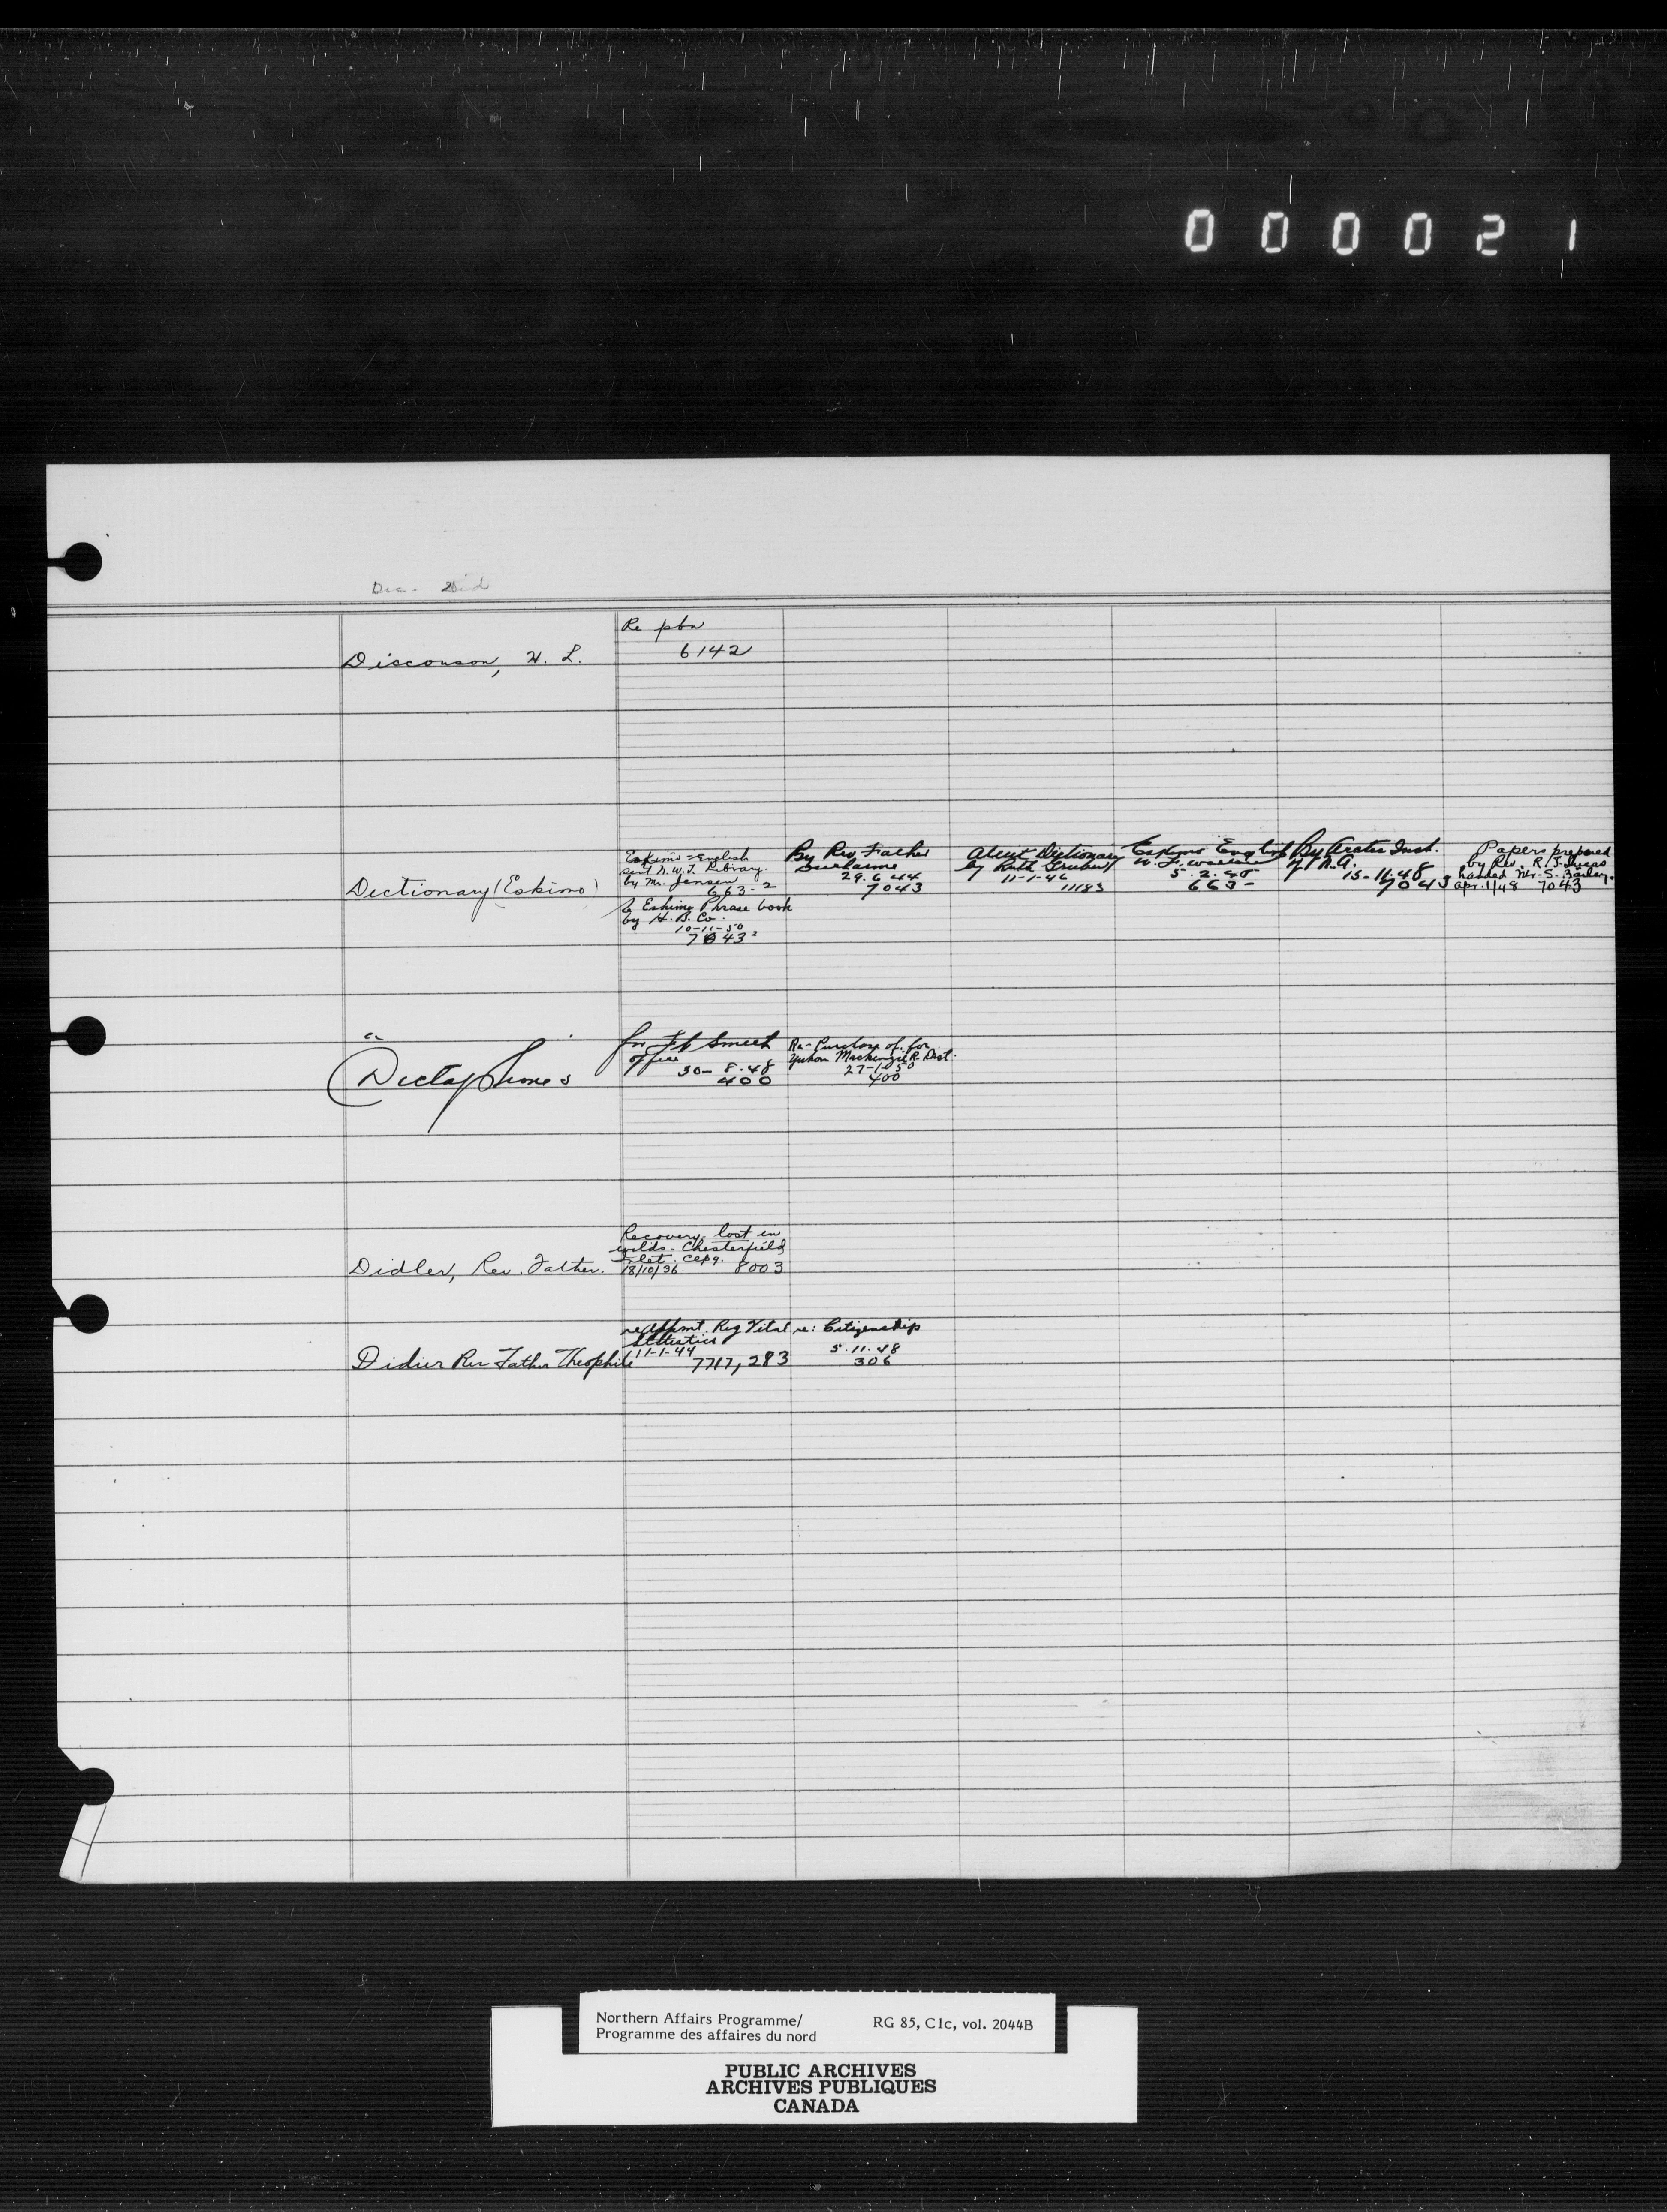 0 0 0 0 2 1
Dic - Did
Re pbn
6142
Disconson, W. L.
Eskimo = English
sent N.W.T. Library
by Mr. Jensen
663-2
Dictionary (Eskimo)
to Eskimo Phrase book
by H. B. Co.
10-11-50
7043²
By Rev Father
29.6.44
7043
Aleut Dictionary
by Ruth Gruber
11-1-46
11183
Eskimo English
5.2.48
663-
By Arctic Inst.
of N.A.
15-11.48
7043
Papers prepared
by Rev. R. J.
handed Mr. S. Bailey.
Apr. 1/48 7043
Dictaphones
for Ft Smith
office
30-8.48
400
Re - Purchase of. for
Yukon Mackenzie R. Dist.
27-1-50
400
Recovery. lost in
wilds. Chesterfield
Inlet.
18/10/36. 8003
Didler, Rev. Father.
re Appmt. Reg Vital
Statistics
11-1-44
7717, 283
Didier Rev Father Theophile
re: Citizenship
5.11.48
306
Northern Affairs Programme/
Programme des affaires du nord
RG 85, C1c, vol. 2044B
PUBLIC ARCHIVES
ARCHIVES PUBLIQUES
CANADA